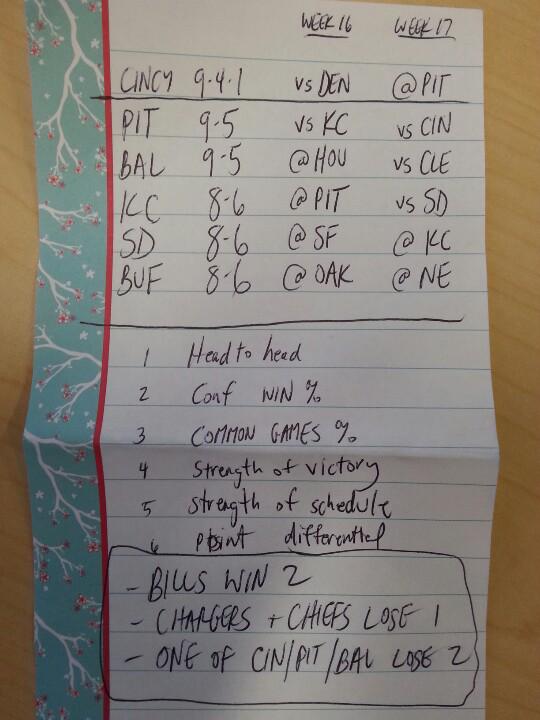 WEEK 16 WEEK 17
CINCY 9-4-1 vs DEN @PIT
PIT 9-5 vs KC vs CIN
BAL 9-5 @HOU vs CLE
KC 8-6 @PIT vs SD
SD 8-6 @SF @KC
BUF 8-6 @OAK @NE
1 Head to head
2 Conf WIN %
3 COMMON GAMES %
4 Strength of victory
5 Strength of schedule
6 Point differential
- BILLS WIN 2
- CHARGERS + CHIEFS LOSE 1
- ONE OF CIN/PIT/BAL LOSE 2